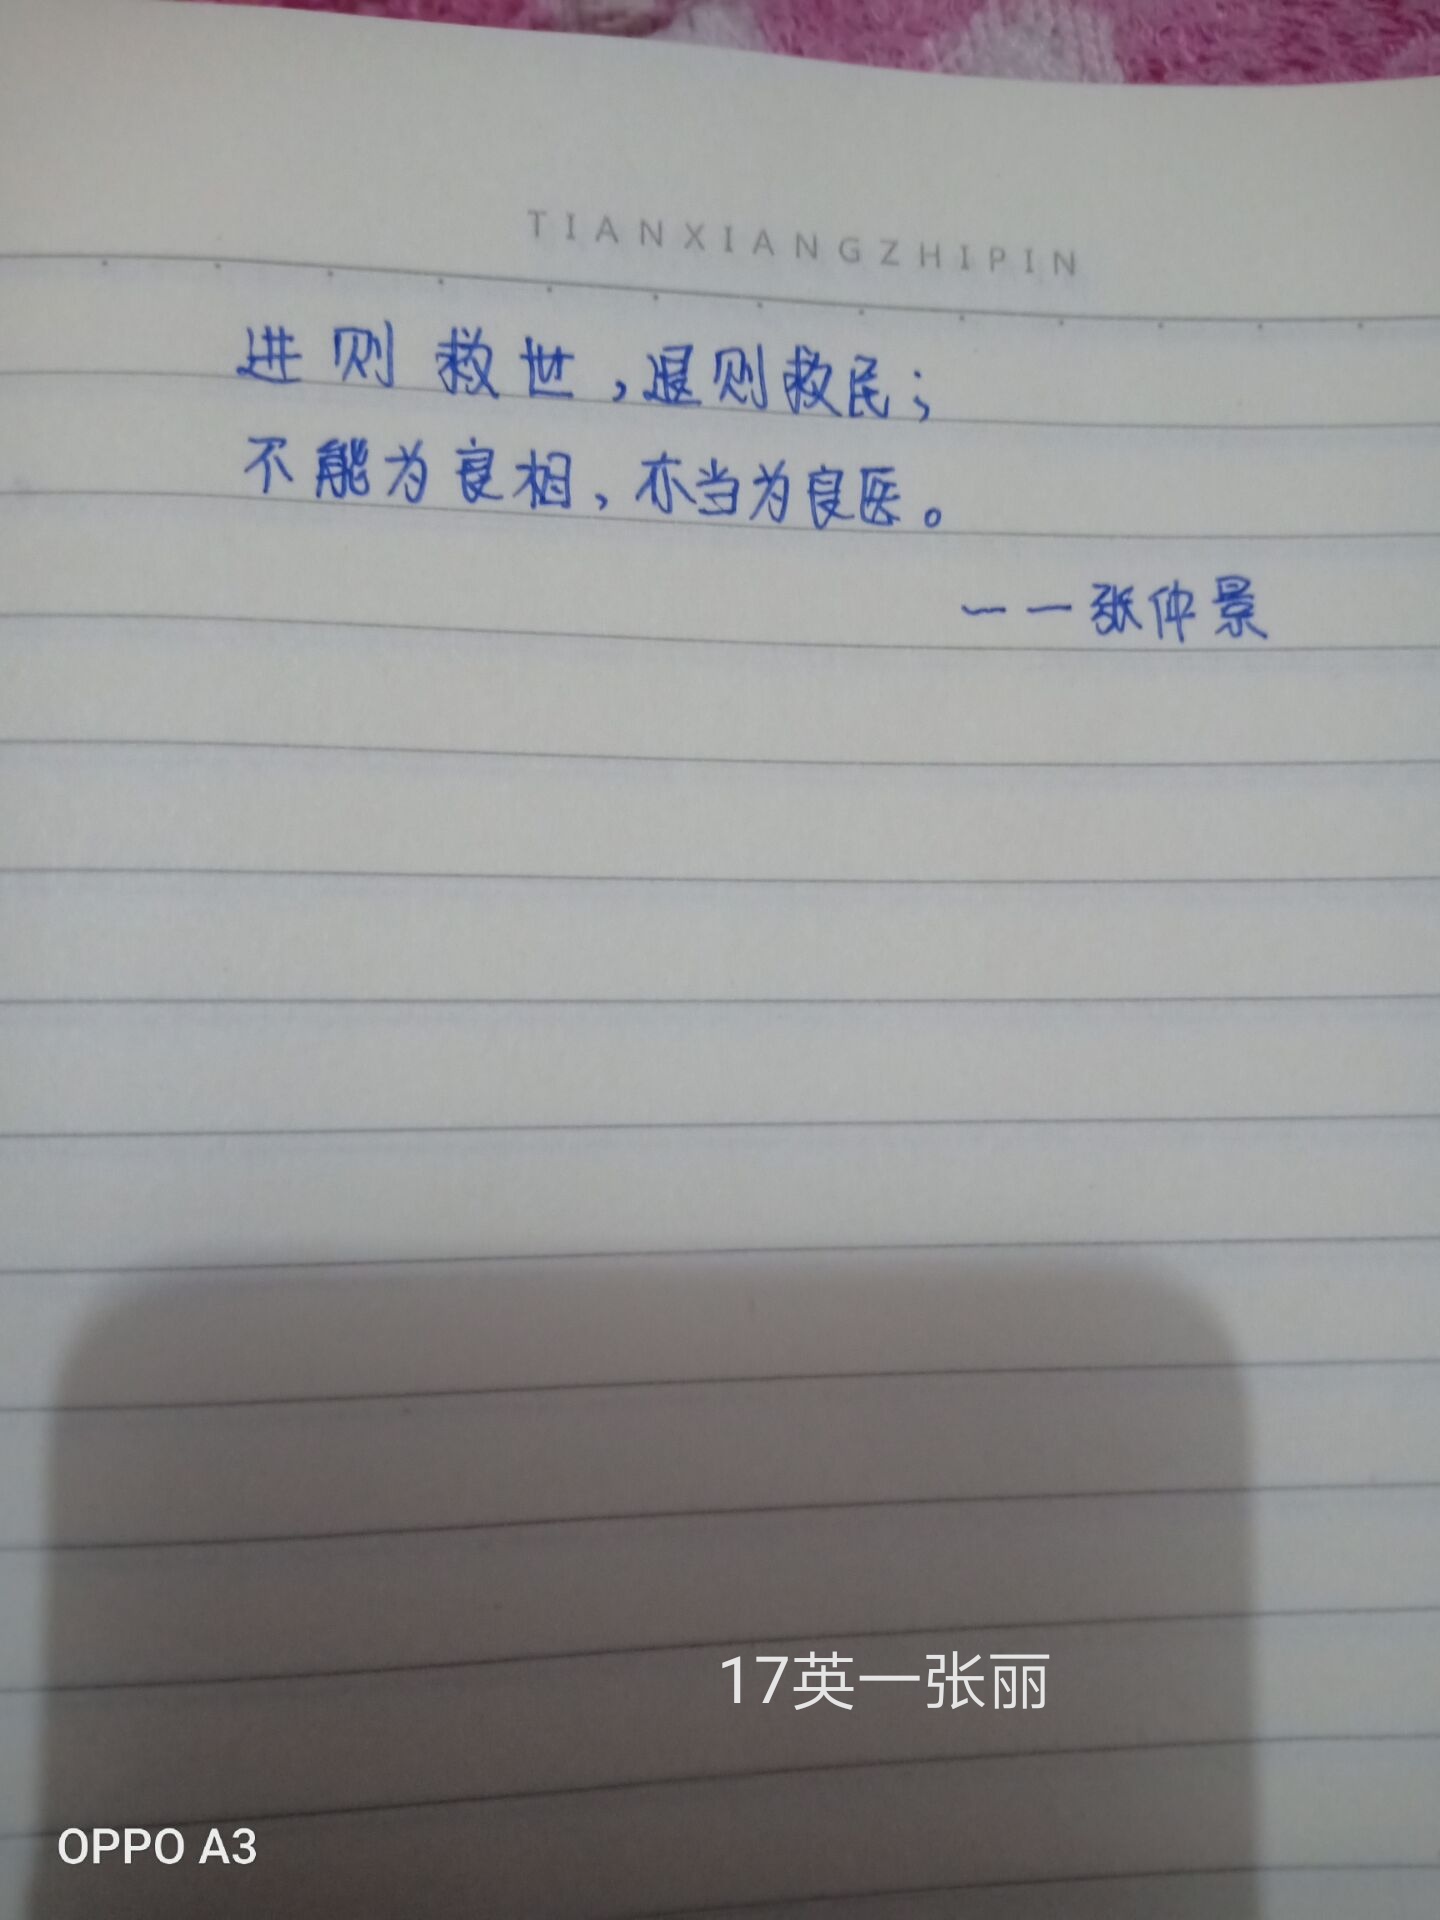 TIANXIANGZHIPIN
进则救世，退则救民；
不能为良相，亦当为良医。
——张仲景
17英一张丽
OPPO A3